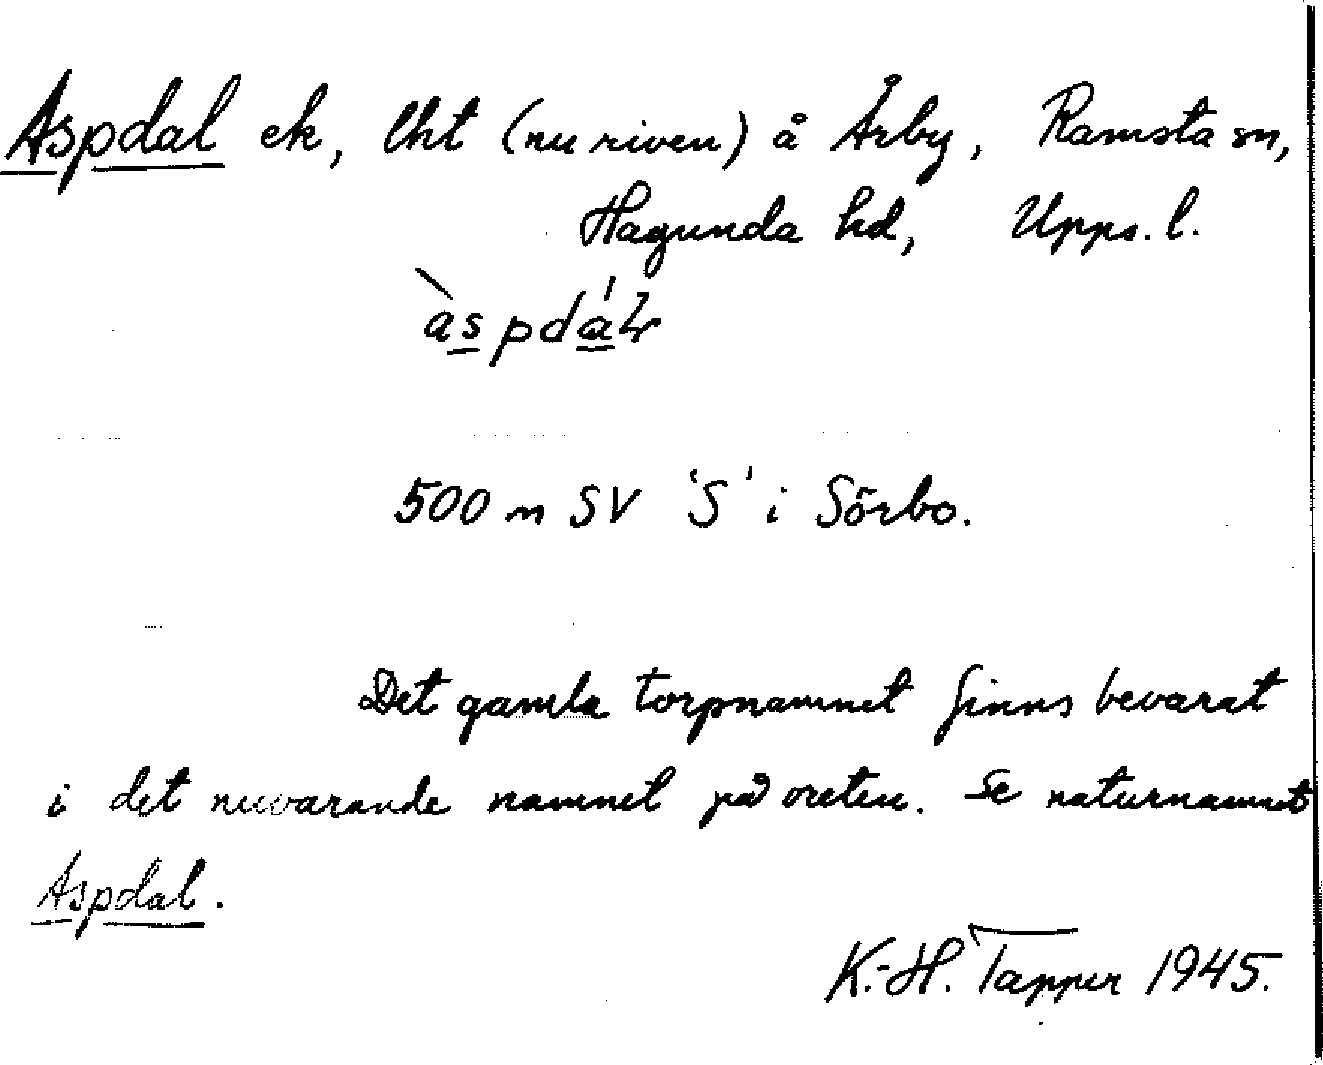 Aspdal ek, lht (nu riven) å Årby, Ramsta sn,
Hagunda hd, Upps. l.
àspdáɫ
500 m SV 'S' i Sörbo.
Det gamla torpnamnet finns bevarat
i det nuvarande namnet på oreten. Se naturnamnet
Aspdal.
K.-H. Tapper 1945.